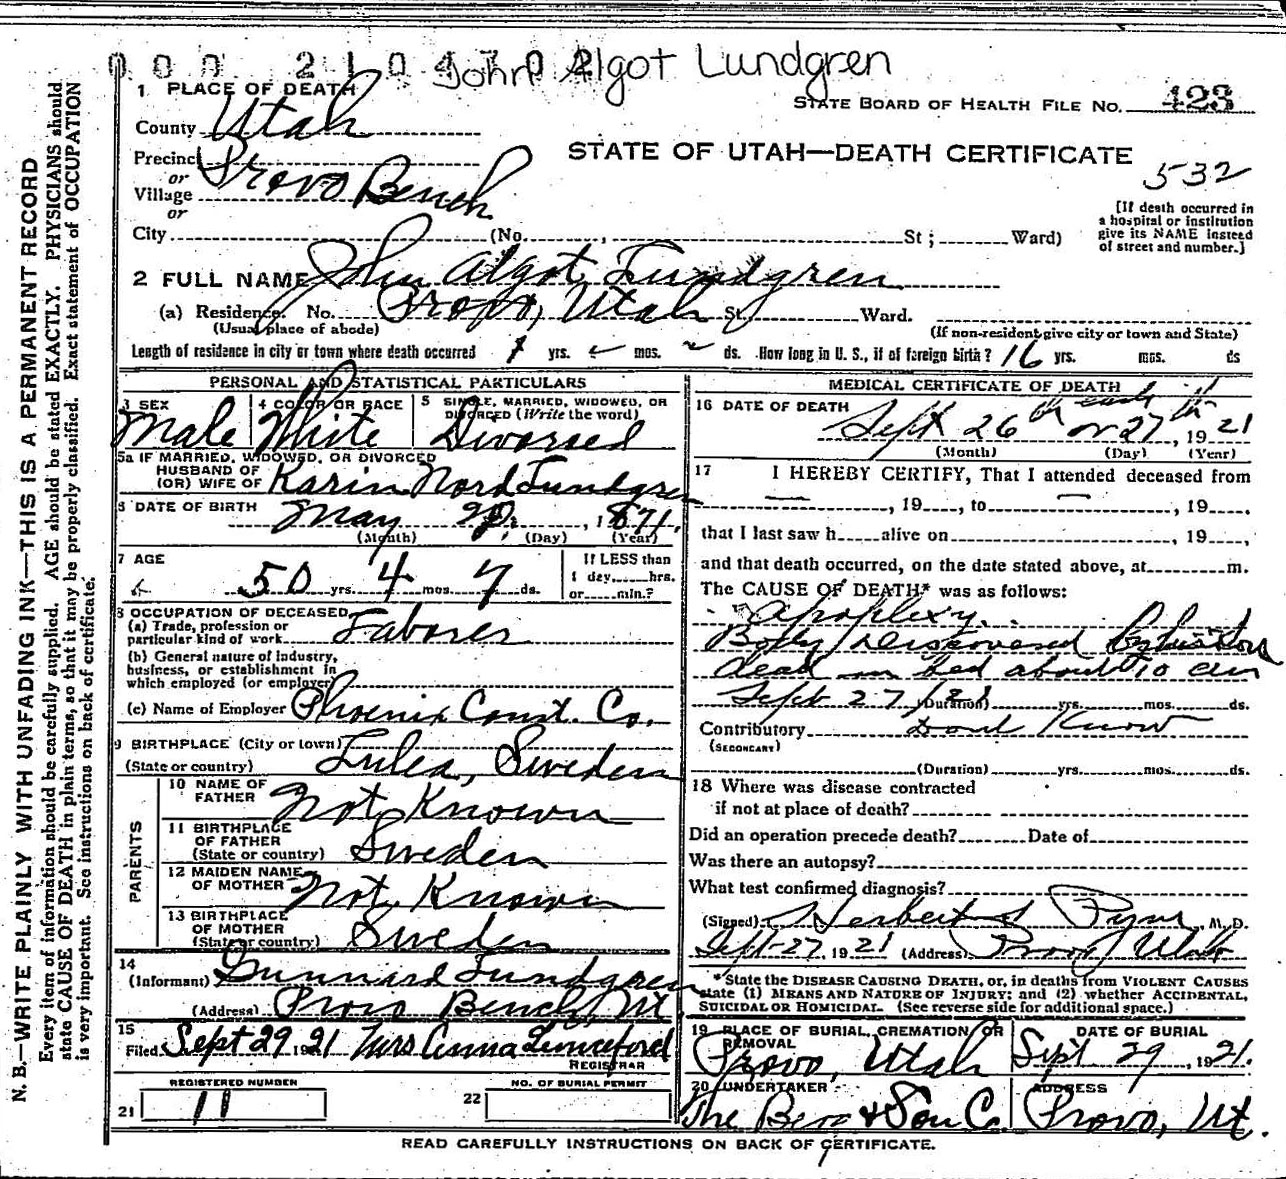 000 2104702
John Algot Lundgren
1 PLACE OF DEATH
STATE BOARD OF HEALTH FILE NO. 423
County Utah
STATE OF UTAH—DEATH CERTIFICATE
532
Precinct
or
Village Provo Bench
or
[If death occurred in
a hospital or institution
give its NAME instead
of street and number.]
City (No. , St; Ward)
2 FULL NAME John Algot Lundgren
(a) Residence. No. Provo, Utah St. Ward.
(Usual place of abode) (If non-resident give city or town and State)
Length of residence in city or town where death occurred yrs. mos. ds. How long in U. S., if of foreign birth? 16 yrs. mos. ds
PERSONAL AND STATISTICAL PARTICULARS
3 SEX Male
4 COLOR OR RACE White
5 SINGLE, MARRIED, WIDOWED, OR
DIVORCED (Write the word)
Divorsed
5a IF MARRIED, WIDOWED, OR DIVORCED
HUSBAND OF
(OR) WIFE OF Karin Nord Lundgren
6 DATE OF BIRTH May 20, 1871.
(Month) (Day) (Year)
7 AGE
50 yrs. 4 mos. 7 ds.
If LESS than
1 day, hrs.
or min.?
8 OCCUPATION OF DECEASED
(a) Trade, profession or
particular kind of work Laborer
(b) General nature of Industry,
business, or establishment in
which employed (or employer)
(c) Name of Employer Phoenix Const. Co.
9 BIRTHPLACE (City or town)
(State or country) Lulea, Sweden
PARENTS
10 NAME OF
FATHER Not Known
11 BIRTHPLACE
OF FATHER
(State or country) Sweden
12 MAIDEN NAME
OF MOTHER Not Known
13 BIRTHPLACE
OF MOTHER
(State or country) Sweden
14
(Informant) Gunnard Lundgren
(Address) Provo Bench, Ut
15
Filed Sept 29 1921 Mrs Anna Lunceford
REGISTRAR
REGISTERED NUMBER
21 11
NO. OF BURIAL PERMIT
22
MEDICAL CERTIFICATE OF DEATH
16 DATE OF DEATH
Sept 26th or 27th, 1921
(Month) (Day) (Year)
17 I HEREBY CERTIFY, That I attended deceased from
, 19 , to , 19 .
that I last saw h alive on , 19 ,
and that death occurred, on the date stated above, at m.
The CAUSE OF DEATH* was as follows:
Apoplexy.
Body discovered by
dead in bed about 10 am
Sept 27/21
(Duration) yrs. mos. ds.
Contributory Dont Know
(SECONDARY)
(Duration) yrs. mos. ds.
18 Where was disease contracted
if not at place of death?
Did an operation precede death? Date of
Was there an autopsy?
What test confirmed diagnosis?
(Signed) Herbert S Pyne, M. D.
Sept-27, 1921 (Address) Provo, Utah
*State the DISEASE CAUSING DEATH, or, in deaths from VIOLENT CAUSES
state (1) MEANS AND NATURE OF INJURY; and (2) whether ACCIDENTAL,
SUICIDAL OR HOMICIDAL. (See reverse side for additional space.)
19 PLACE OF BURIAL, CREMATION, OR
REMOVAL
Provo, Utah
DATE OF BURIAL
Sept 29, 1921.
20 UNDERTAKER
The Berg & Son Co.
ADDRESS
Provo, Ut.
READ CAREFULLY INSTRUCTIONS ON BACK OF CERTIFICATE.
N. B.—WRITE PLAINLY WITH UNFADING INK—THIS IS A PERMANENT RECORD
Every item of information should be carefully supplied. AGE should be stated EXACTLY. PHYSICIANS should
state CAUSE OF DEATH in plain terms, so that it may be properly classified. Exact statement of OCCUPATION
is very important. See instructions on back of certificate.